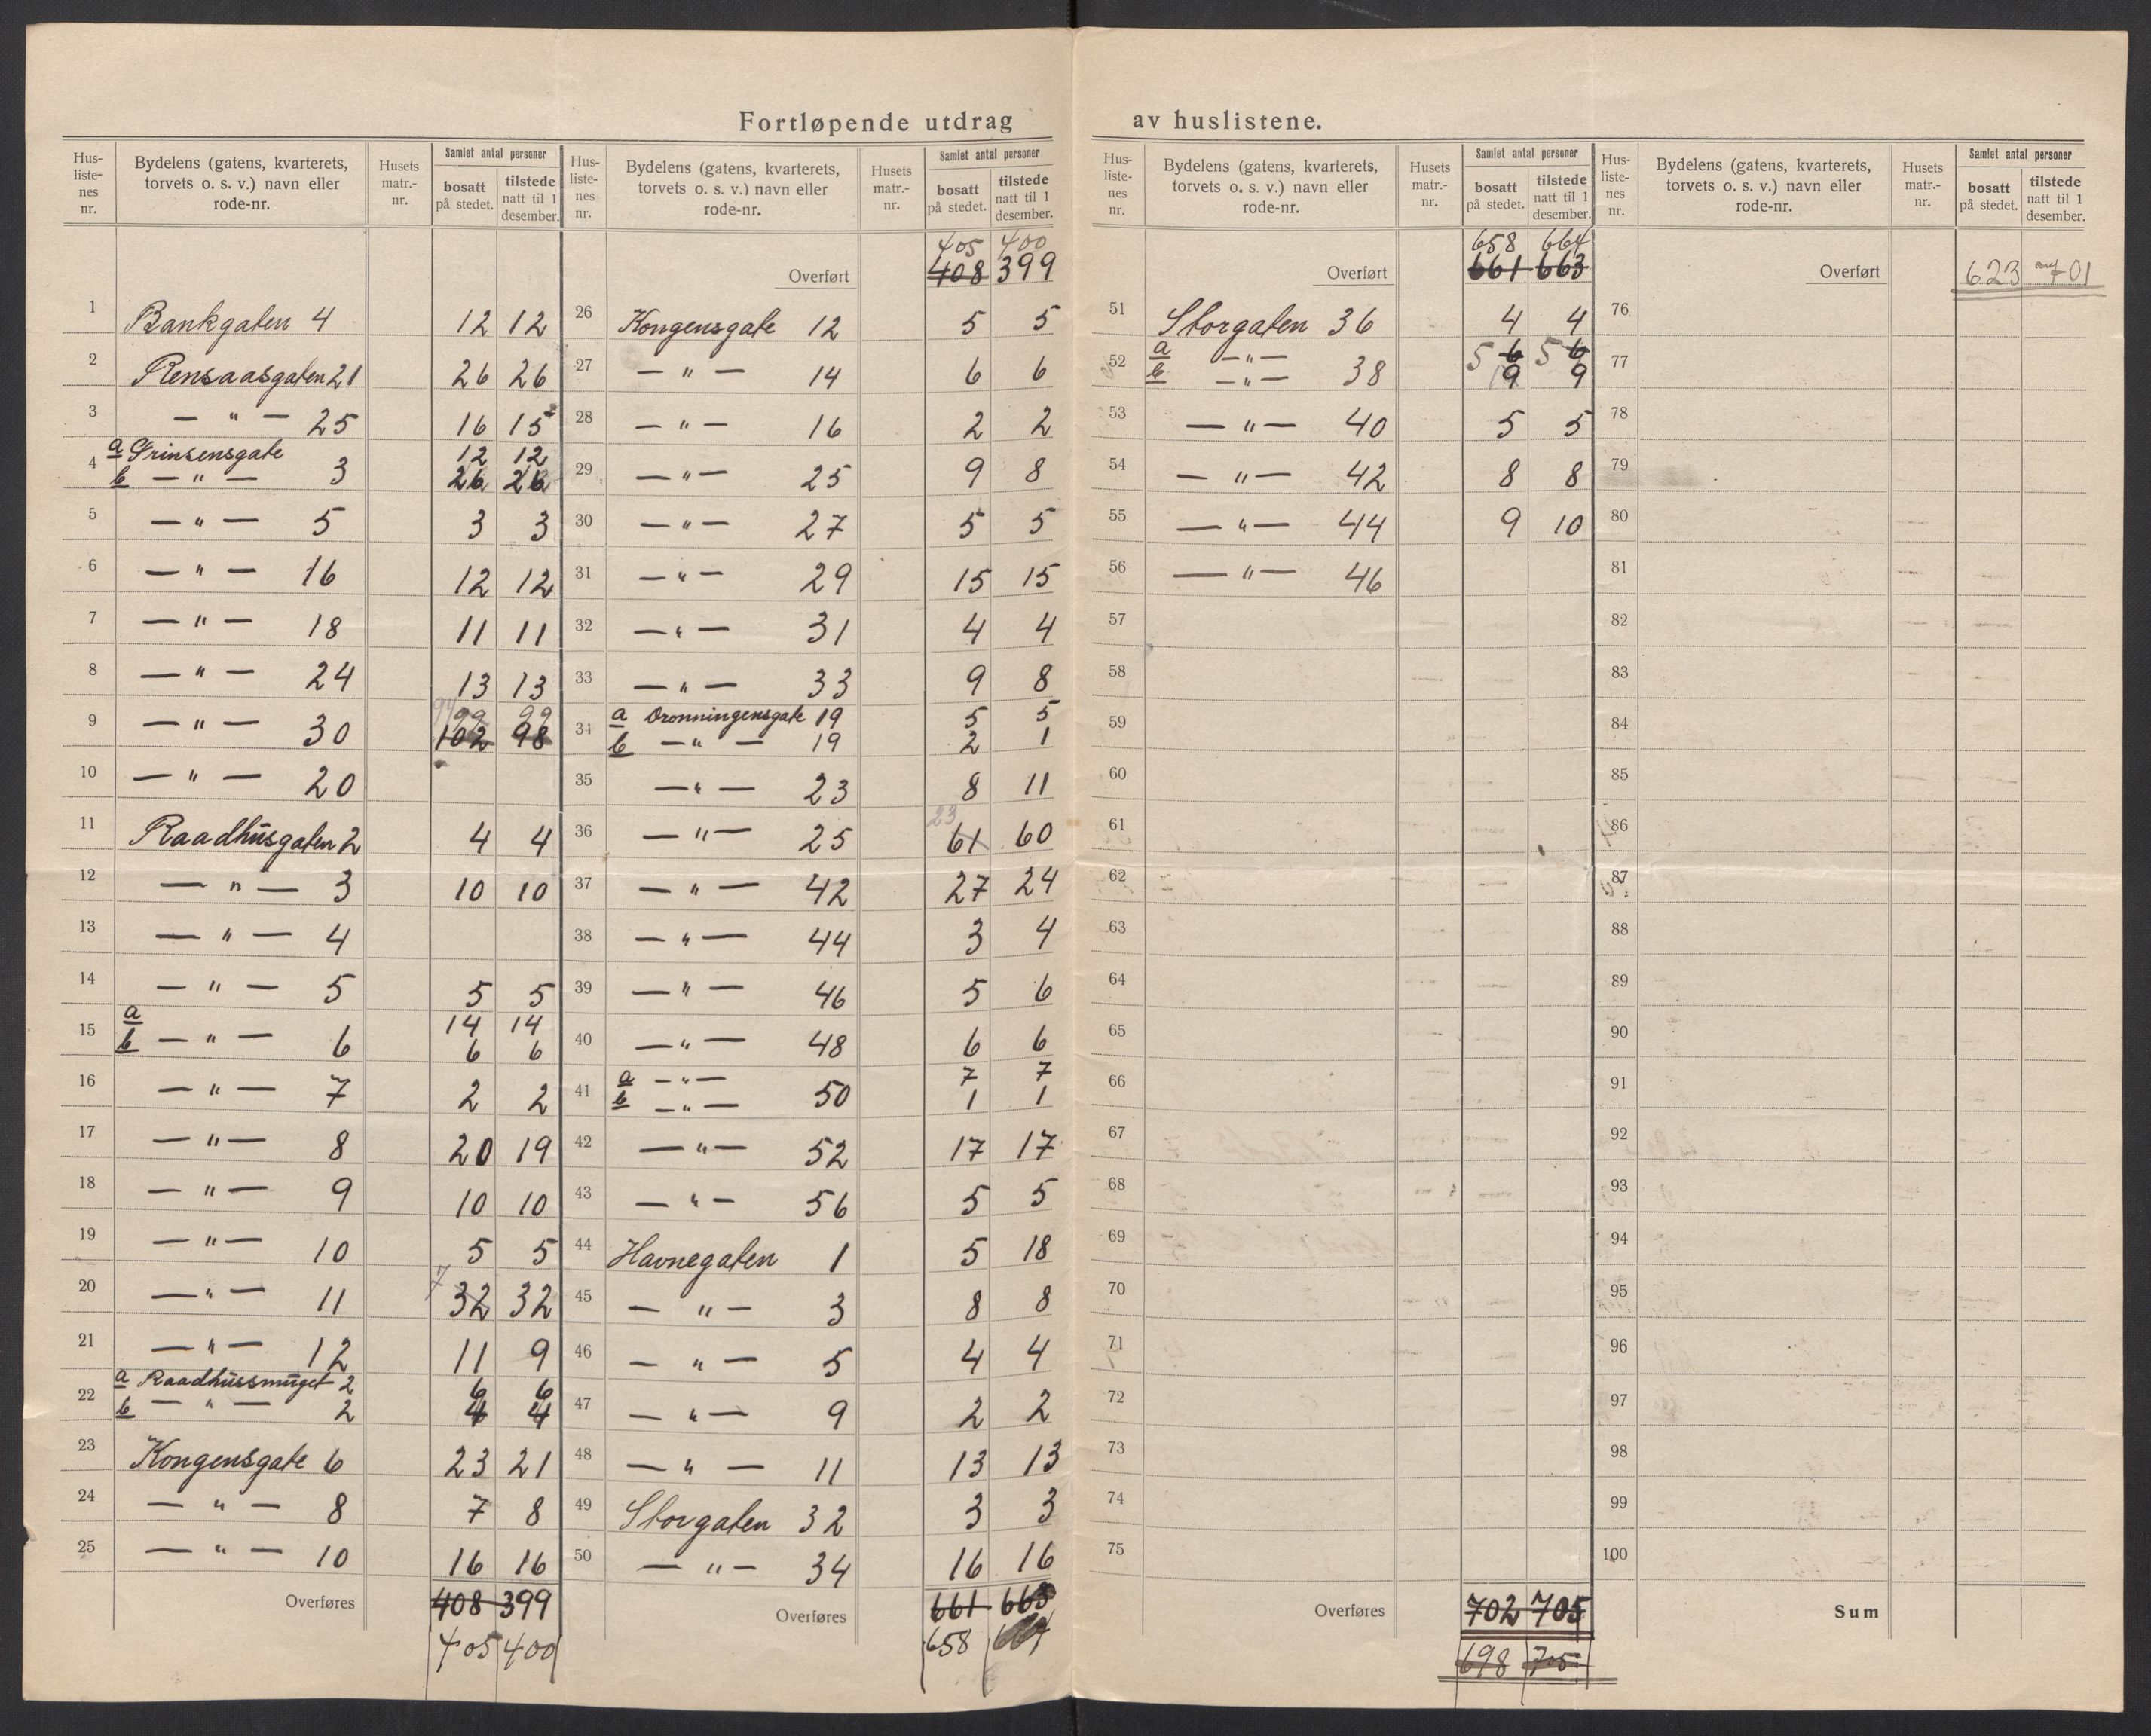 Fortløpende utdrag av huslistene.
Hus-
liste-
nes
nr.
Bydelens (gatens, kvarterets,
torvets o. s. v.) navn eller
rode-nr.
Husets
matr.-
nr.
Samlet antal personer
bosatt
på stedet.
tilstede
natt til 1
desember.
1 Bankgaten 4 12 12
2 Rensaasgaten 21 26 26
3 — " — 25 16 15
4 a Prinsensgate 12 12
b — " — 3 26 26
5 — " — 5 3 3
6 — " — 16 12 12
7 — " — 18 11 11
8 — " — 24 13 13
94 99 99
9 — " — 30 102 98
10 — " — 20
11 Raadhusgaten 2 4 4
12 — " — 3 10 10
13 — " — 4
14 — " — 5 5 5
15 a 14 14
b — " — 6 6 6
16 — " — 7 2 2
17 — " — 8 20 19
18 — " — 9 10 10
19 — " — 10 5 5
20 — " — 11 7 32 32
21 — " — 12 11 9
22 a Raadhussmuget 2 6 6
b — " — 2 4 4
23 Kongensgate 6 23 21
24 — " — 8 7 8
25 — " — 10 16 16
Overføres 408 399
405 400
Hus-
liste-
nes
nr.
Bydelens (gatens, kvarterets,
torvets o. s. v.) navn eller
rode-nr.
Husets
matr.-
nr.
Samlet antal personer
bosatt
på stedet.
tilstede
natt til 1
desember.
405 400
Overført 408 399
26 Kongensgate 12 5 5
27 — " — 14 6 6
28 — " — 16 2 2
29 — " — 25 9 8
30 — " — 27 5 5
31 — " — 29 15 15
32 — " — 31 4 4
33 — " — 33 9 8
34 a Dronningensgate 19 5 5
b — " — 19 2 1
35 — " — 23 8 11
23
36 — " — 25 61 60
37 — " — 42 27 24
38 — " — 44 3 4
39 — " — 46 5 6
40 — " — 48 6 6
41 a — " — 7 7
b — " — 50 1 1
42 — " — 52 17 17
43 — " — 56 5 5
44 Havnegaten 1 5 18
45 — " — 3 8 8
46 — " — 5 4 4
47 — " — 9 2 2
48 — " — 11 13 13
49 Storgaten 32 3 3
50 — " — 34 16 16
Overføres 661 663
658 664
Hus-
liste-
nes
nr.
Bydelens (gatens, kvarterets,
torvets o. s. v.) navn eller
rode-nr.
Husets
matr.-
nr.
Samlet antal personer
bosatt
på stedet.
tilstede
natt til 1
desember.
658 664
Overført 661 663
51 Storgaten 36 4 4
52 a — " — 5 6 5 6
b — " — 38 9 9
53 — " — 40 5 5
54 — " — 42 8 8
55 — " — 44 9 10
56 — " — 46
57
58
59
60
61
62
63
64
65
66
67
68
69
70
71
72
73
74
75
Overføres 702 705
698 705
Hus-
liste-
nes
nr.
Bydelens (gatens, kvarterets,
torvets o. s. v.) navn eller
rode-nr.
Husets
matr.-
nr.
Samlet antal personer
bosatt
på stedet.
tilstede
natt til 1
desember.
Overført 623 701
76
77
78
79
80
81
82
83
84
85
86
87
88
89
90
91
92
93
94
95
96
97
98
99
100
Sum